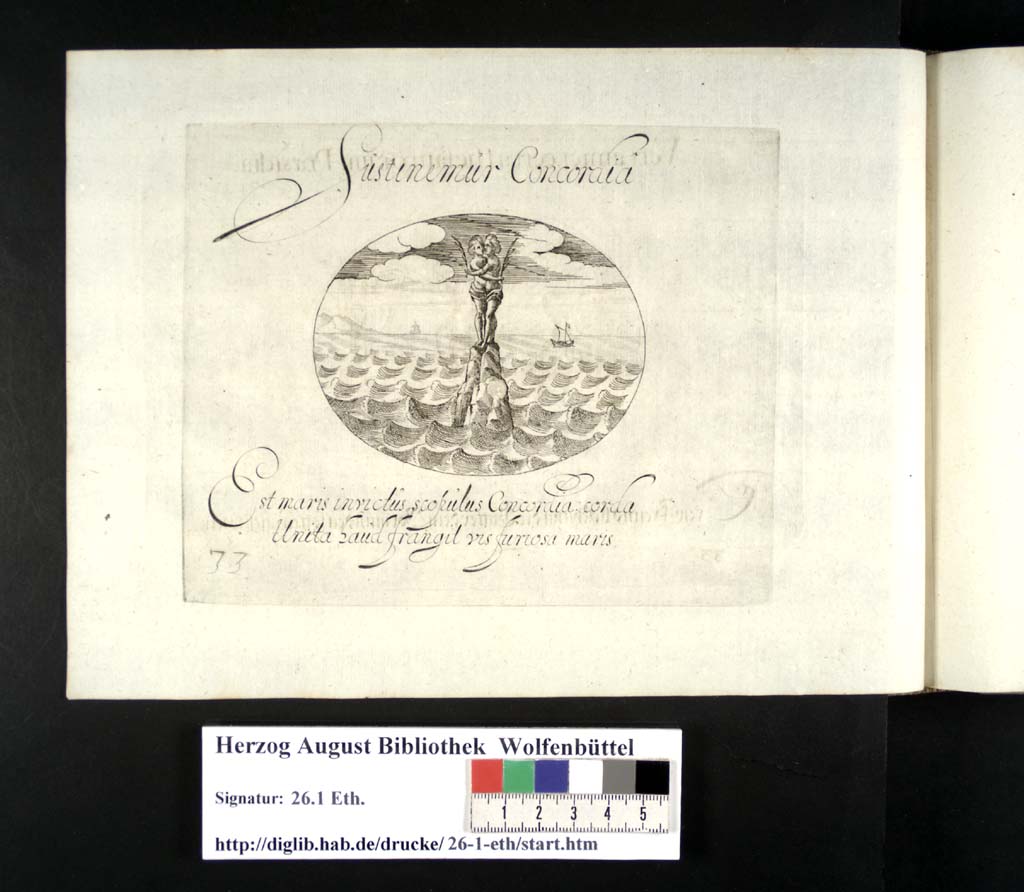 Sustinemur Concordia
Est maris invictus, scopulus Concordia; corda
Unita haud frangit vis furiosa maris.
33
Herzog August Bibliothek Wolfenbüttel
Signatur: 26.1 Eth.
1 2 3 4 5
http://diglib.hab.de/drucke/ 26-1-eth/start.htm